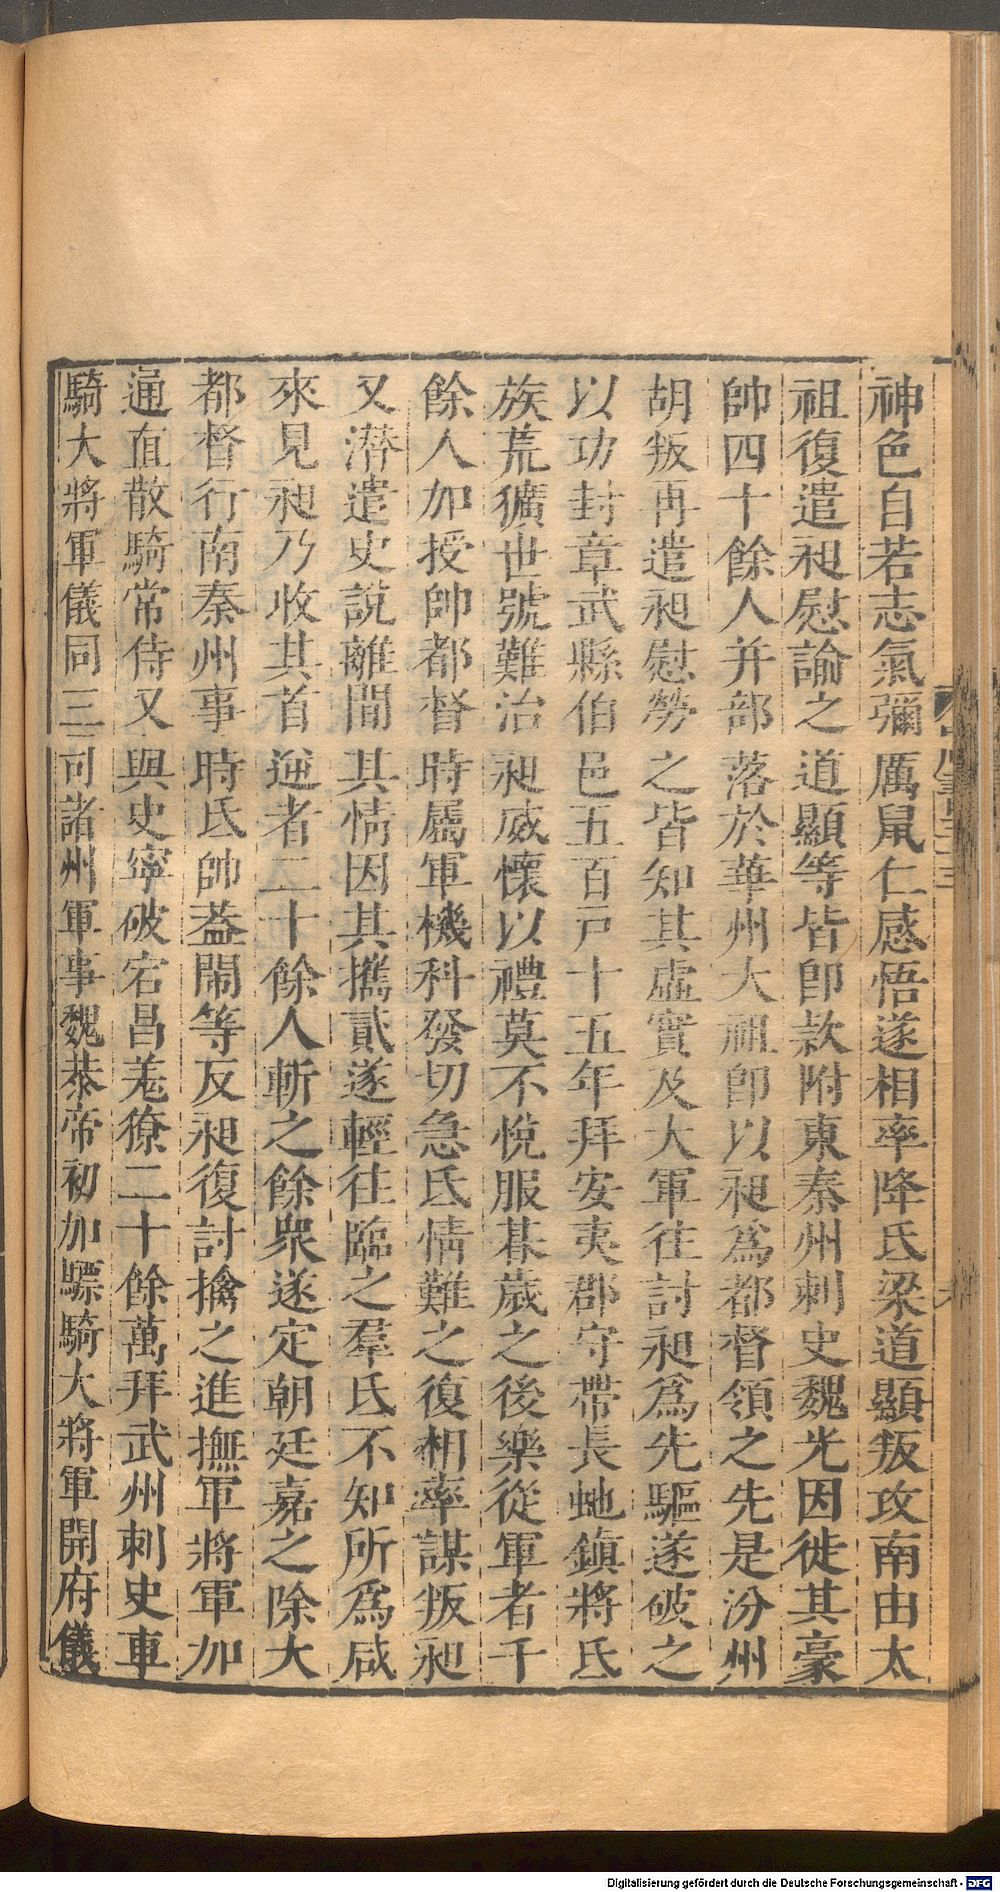 神色自若志氣彌厲鼠仁感悟遂相率降氐梁道顯叛攻南由太
祖復遣昶慰諭之道顯等皆卽款附東秦州刺史魏光因徙其豪
帥四十餘人并部落於華州大祖卽以昶爲都督領之先是汾州
胡叛再遣昶慰勞之皆知其虛實及大軍往討昶爲先驅遂破之
以功封章武縣伯邑五百戸十五年拜安夷郡守帶長虵鎮將氐
族荒獷世號難治昶威懷以禮莫不悅服朞歲之後樂從軍者千
餘人加授帥都督時屬軍機科發切急氐情難之復相率謀叛昶
又潛遣史說離間其情因其攜貳遂輕往臨之羣氐不知所爲咸
來見昶乃收其首逆者二十餘人斬之餘衆遂定朝廷嘉之除大
都督行南秦州事時氐帥葢閙等反昶復討擒之進撫軍將軍加
通直散騎常侍又與史寜破宕昌羗獠二十餘萬拜武州刺史車
騎大將軍儀同三司諸州軍事魏恭帝初加驃騎大將軍開府儀
Digitalisierung gefördert durch die Deutsche Forschungsgemeinschaft - DFG